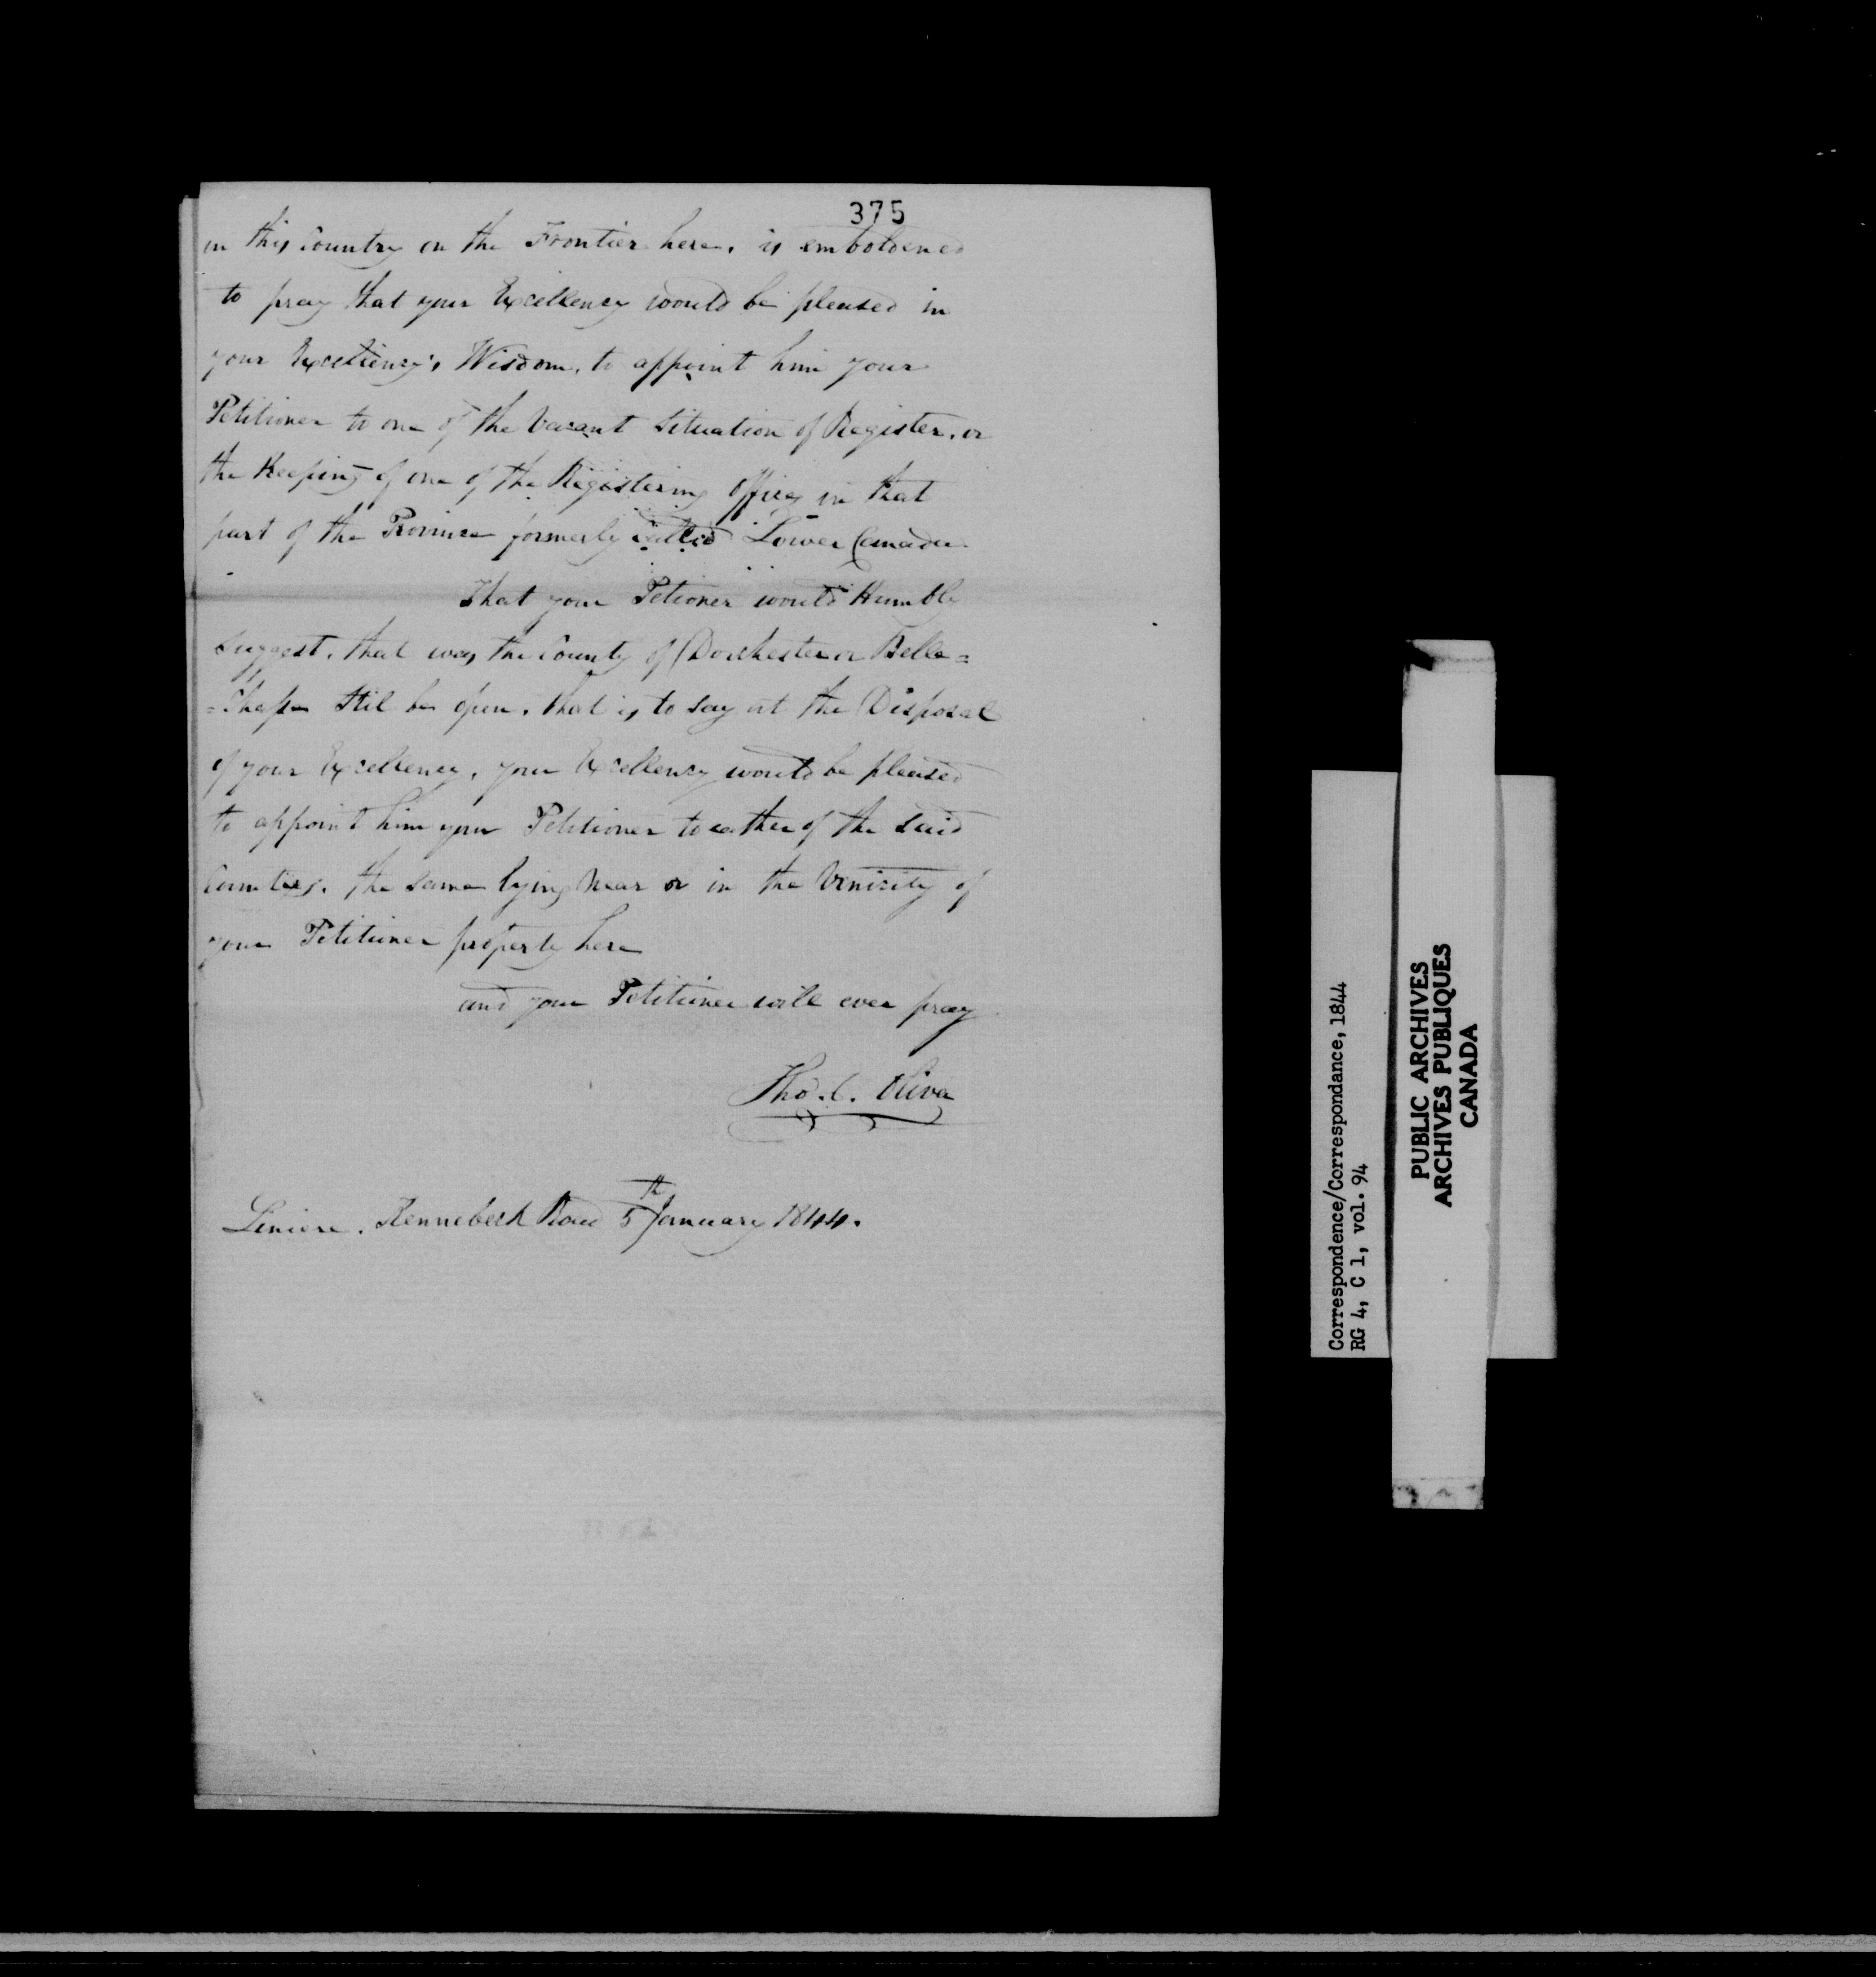 375
in this Country on the Frontier here, is emboldened
to pray that your Excellency would be pleased in
your Excellency's Wisdom, to appoint him your
Petitioner to one of the Vacant Situation of Register, or
the Keeping of one of the Registering Offices in that
part of the Province formerly called Lower Canada.
That your Petioner would Humbly
Suggest, that was the County of Dorchester or Belle=
=Chasse Stil be open, that is to say at the Disposal
of your Excellency, your Excellency would be pleased
to appoint him your Petitioner to eather of the said
Counties, the same lying Near or in the Vinicity of
your Petitioner property here
and your Petitioner will ever pray
Tho. C. Oliva
Liniere. Kennebeck Road 5th January 1844.
Correspondence/Correspondance, 1844
RG 4, C 1, vol. 94
PUBLIC ARCHIVES
ARCHIVES PUBLIQUES
CANADA